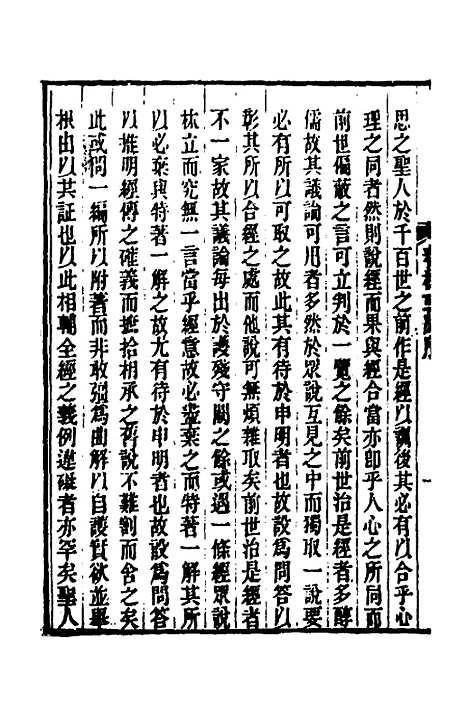 思之聖人於千百世之前作是經以觀後其必有以合乎心
理之同者然則說經而果與經合當亦卽乎人心之所同而
前世偏蔽之言可立判於一覽之餘矣前世治是經者多醇
儒故其議論可用者多然於眾說互見之中而獨取一說要
必有所以可取之之故此其有待於申明者也故設爲問答以
彰其所以合經之處而他說可無煩雜取矣前世治是經者
不一家故其議論每出於護殘守闕之餘或遇一條經眾說
林立而究無一言當乎經意故必盡棄之而特著一解其所
以必棄與特著一解之故尤有待於申明者也故設爲問答
以推明經傳之確義而摭拾相承之舊說不難割而舍之矣
此或問一編所以附著而非敢强爲曲解以自護實欲並舉
根由以其証也以此相輔全經之義例違礙者亦罕矣聖人